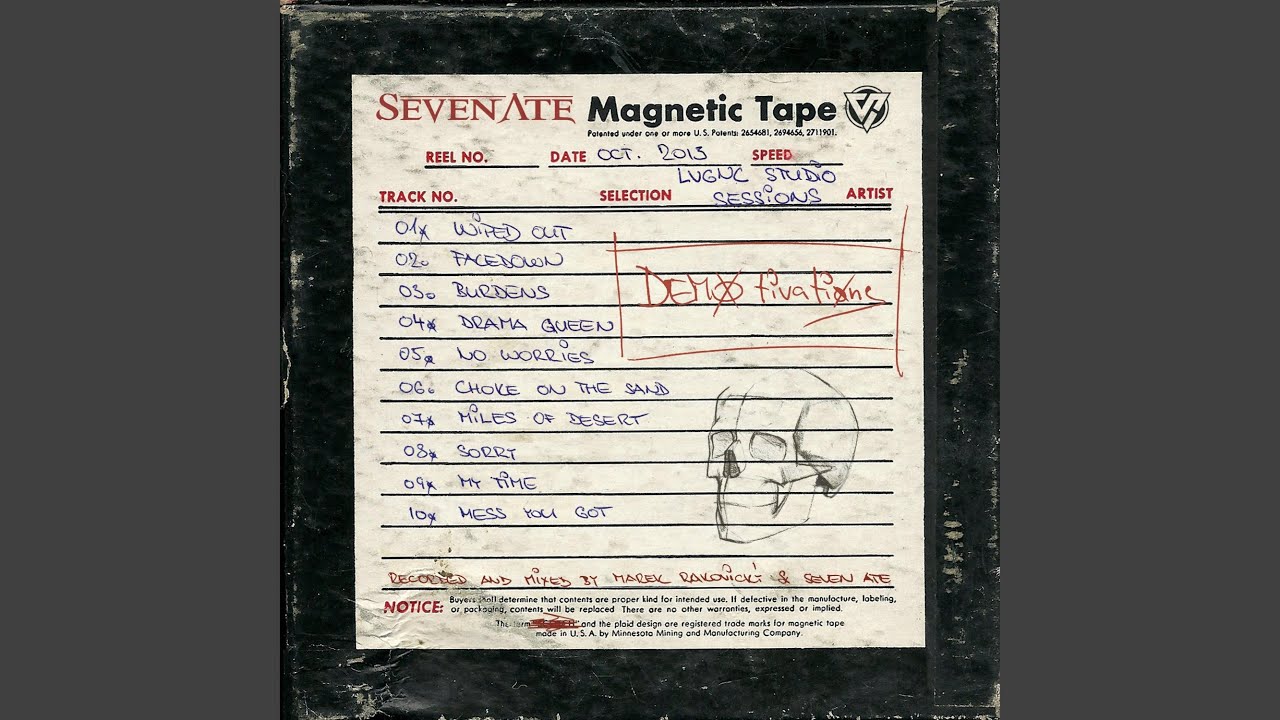 SEVEN ATE Magnetic Tape
Patented under one or more U.S. Patents: 2654681, 2694656, 2711901.
REEL NO. DATE OCT. 2013 SPEED
LVGNC STUDIO
TRACK NO. SELECTION SESSIONS ARTIST
01. WIPED OUT
02. FACEDOWN
DEMOtivations
03. BURDENS
04. DRAMA QUEEN
05. NO WORRIES
06. CHOKE ON THE SAND
07. MILES OF DESERT
08. SORRY
09. MY TIME
10. MESS YOU GOT
RECORDED AND MIXED BY MAREK RAKOVICKÝ & SEVEN ATE
NOTICE: Buyers shall determine that contents are proper kind for intended use. If defective in the manufacture, labeling,
or packaging, contents will be replaced There are no other warranties, expressed or implied.
The term and the plaid design are registered trade marks for magnetic tape
made in U.S.A. by Minnesota Mining and Manufacturing Company.